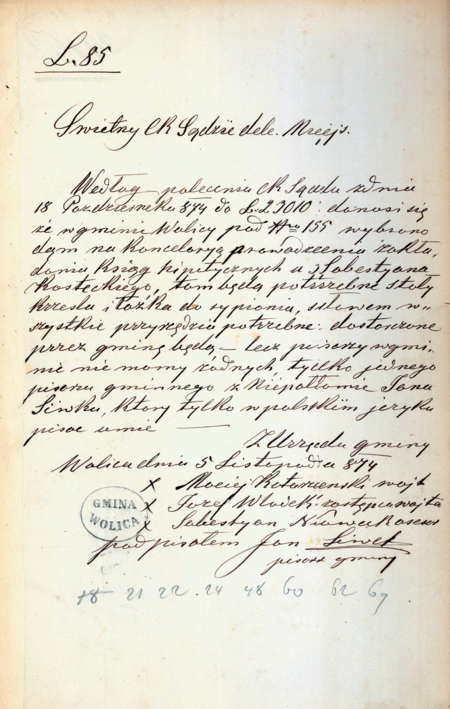 L. 85
Swietny CK Sądzie dele. Miejs.
Według polecenia CK Sądu z dnia
18 Pazdziernika 874 do L. 23010: donosi się
że w gminie Wolicy pod Nro 155 wybrano
dom na kancelaryą prowadzenia zakła,
dania Książ hipitycznych u Sobestyana
Kosteckiego, tam będą potrzebne stoły
krzesła i łóżka do sypienia, słowem w-
szystkie przyrzędzia potrzebne: dostarczone
przez gminę będą – lecz pisarzy w gmi,
nie nie momy żódnych, tylko jednego
pisarza gminnego z Niepołomic Jana
Siwka, ktory tylko w polskiim jezyku
pisac umie —
Z Urzędu gminy
Wolica dnia 5 Listopada 874
x Maciej wojt
x Jozef zastępca wojta
x Sobestyan
GMINA
WOLICA
podpisałem Jan Siwek
pisarz gminny
18 21 22 24 48 60 62 67